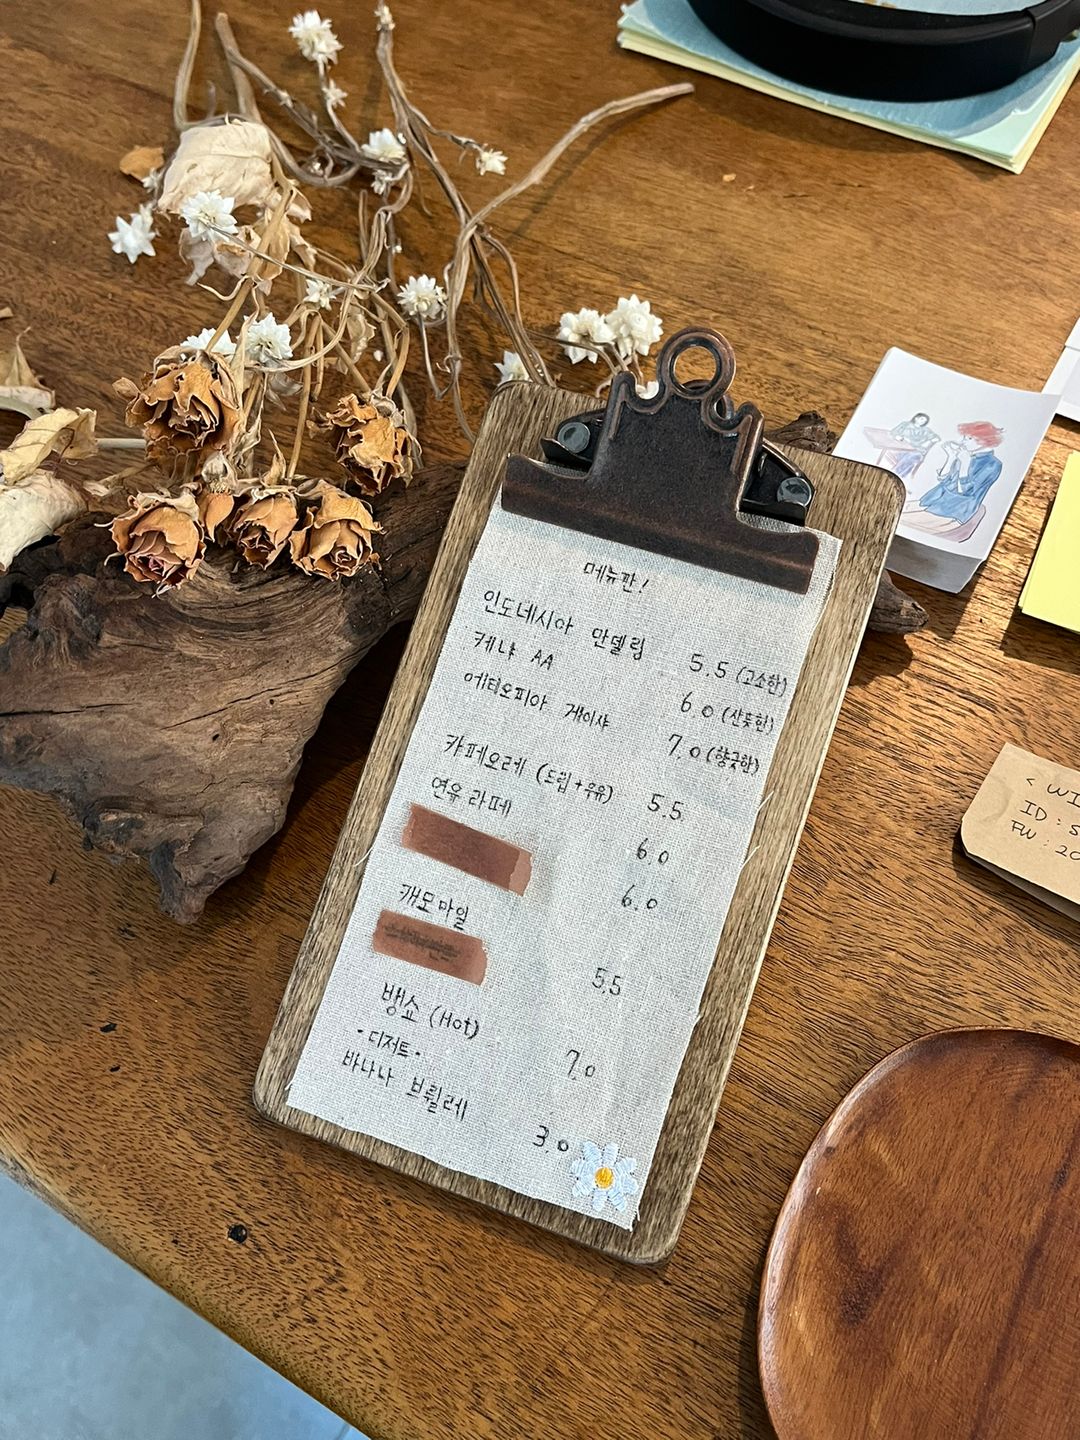 메뉴판!
인도네시아 만델링 5.5 (고소한)
케냐 AA 6.0 (산뜻한)
에티오피아 게이샤 7.0 (향긋한)
카페오레 (드립+우유) 5.5
연유 라떼 6.0
6.0
캐모마일 5.5
뱅쇼 (Hot) 7.0
-디저트-
바나나 브륄레 3.0
< WI
ID : S
PW : 20